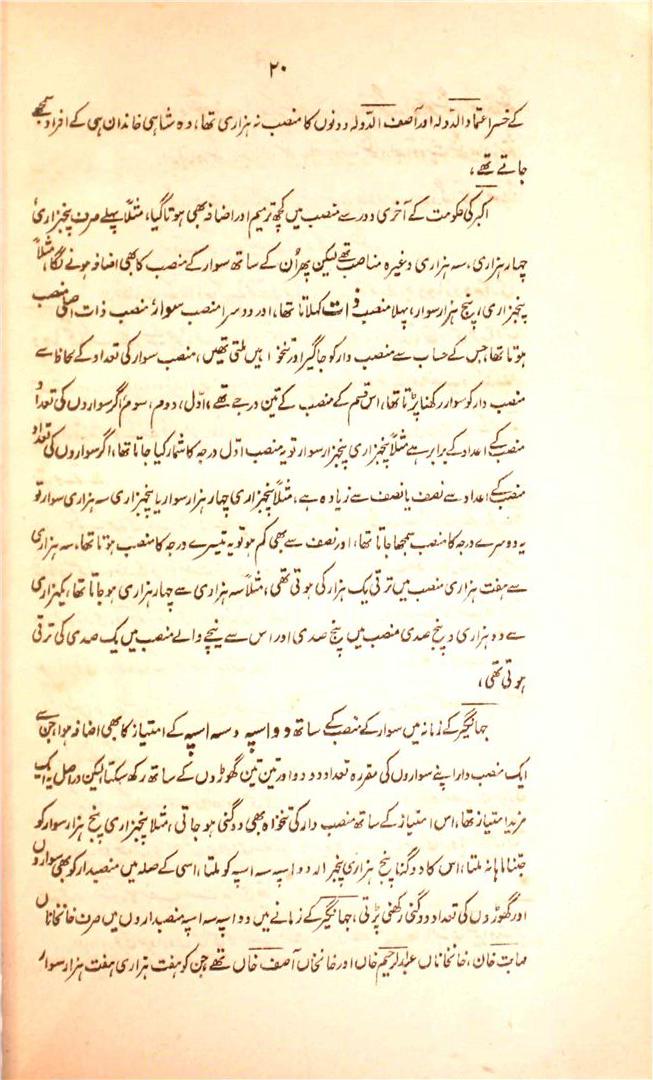 ۲۰
کے خسر اعتماد الدّولہ اور آصف الدّولہ دونوں کا منصب نہ ہزاری تھا، وہ شاہی خاندان ہی کے افراد سمجھے
جاتے تھے،
اکبر کی حکومت کے آخری دور سے منصب میں کچھ ترمیم اور اضافہ بھی ہوتا گیا، مثلاً پہلے صرف پنجہزاری،
چہار ہزاری، سہ ہزاری وغیرہ مناصب تھے لیکن پھر اُن کے ساتھ سوار کے منصب کا بھی اضافہ ہونے لگا، مثلاً
پنجہزاری، پنج ہزار سوار، پہلا منصب ذات کہلاتا تھا، اور دوسرا منصب سوار، منصب ذات اصلی منصب
ہوتا تھا، جس کے حساب سے منصب دار کو جاگیر اور تنخواہیں ملتی تھیں، منصب سوار کی تعداد کے لحاظ سے
منصب دار کو سوار رکھنا پڑتا تھا، اس قسم کے منصب کے تین درجے تھے، اوّل، دوم، سوم، اگر سواروں کی تعداد
منصب کے اعداد کے برابر ہے مثلاً پنجہزاری پنجہزار سوار تو یہ منصب اوّل درجہ کا شمار کیا جاتا تھا، اگر سواروں کی تعداد
منصب کے اعداد سے نصف یا نصف سے زیادہ ہے، مثلاً پنجہزاری چہار ہزار سوار یا پنجہزاری سہ ہزاری سوار تو
یہ دوسرے درجہ کا منصب سمجھا جاتا تھا، اور نصف سے بھی کم ہو تو یہ تیسرے درجہ کا منصب ہوتا تھا، سہ ہزاری
سے ہفت ہزاری منصب میں ترقی یک ہزار کی ہوتی تھی، مثلاً سہ ہزاری سے چہار ہزاری ہو جاتا تھا، یکہزاری
سے دو ہزاری و پنج صدی منصب میں پنج صدی اور اس سے نیچے والے منصب میں یک صدی کی ترقی
ہوتی تھی،
جہانگیر کے زمانہ میں سوار کے منصب کے ساتھ دو اسپہ و سہ اسپہ کے امتیاز کا بھی اضافہ ہوا، جس سے
ایک منصب دار اپنے سواروں کی مقررہ تعداد دو دو اور تین تین گھوڑوں کے ساتھ رکھ سکتا، لیکن دراصل یہ ایک
مزید امتیاز تھا، اس امتیاز کے ساتھ منصب دار کی تنخواہ بھی دوگنی ہو جاتی، مثلاً پنجہزاری پنج ہزار سوار کو
جتنا ماہانہ ملتا، اس کا دوگنا پنج ہزاری پنجہزار دو اسپہ سہ اسپہ کو ملتا، اسی کے صلہ میں منصبدار کو بھی سواروں
اور گھوڑوں کی تعداد دوگنی رکھنی پڑتی، جہانگیر کے زمانے میں دو اسپہ سہ اسپہ منصبداروں میں صرف خانخاناں
مہابت خان، خانخاناں عبدالرحیم خاں اور خانخاناں آصف خاں تھے، جن کو ہفت ہزاری ہفت ہزار سوار